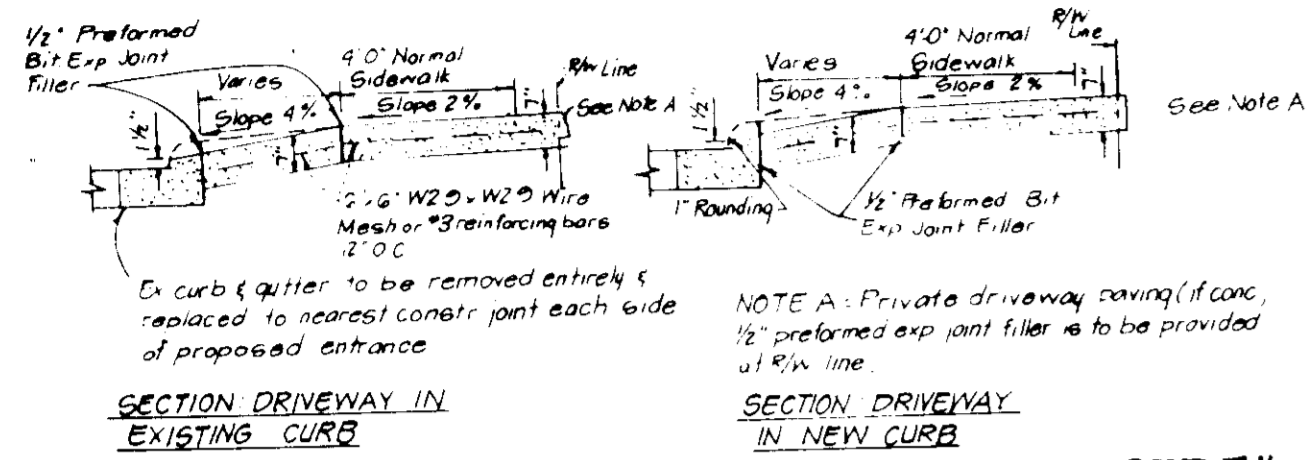 1/2" Preformed
Bit. Exp Joint
Filler
Varies
Slope 4%
4'0" Normal
Sidewalk
Slope 2%
R/W Line
See Note A
1 1/2"
7"
7"
6"x6" W2.9 x W2.9 Wire
Mesh or #3 reinforcing bars
12" O C
Ex curb & gutter to be removed entirely &
replaced to nearest constr joint each side
of proposed entrance
SECTION DRIVEWAY IN
EXISTING CURB
Varies
Slope 4%
4'0" Normal
Sidewalk
Slope 2%
R/W
Line
See Note A
1 1/2"
7"
7"
1" Rounding
1/2" Preformed Bit
Exp Joint Filler
NOTE A: Private driveway paving (if conc,
1/2" preformed exp joint filler is to be provided
at R/W line.
SECTION DRIVEWAY
IN NEW CURB